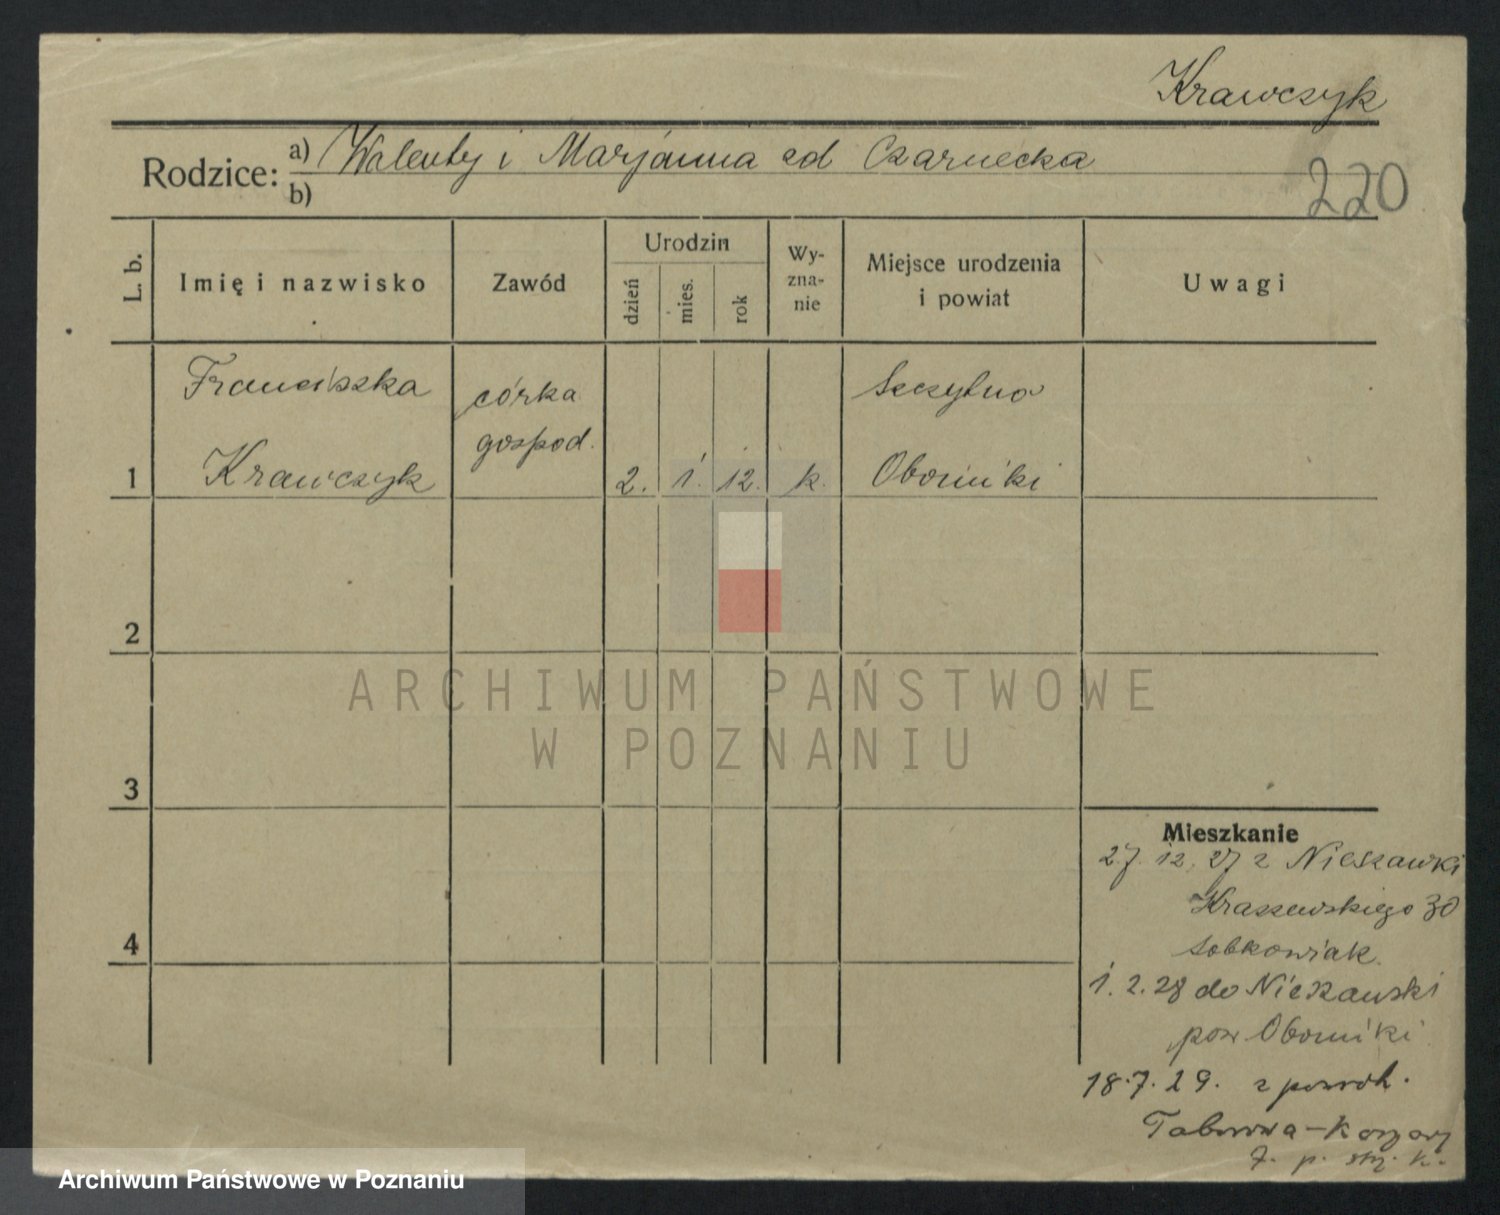 Krawczyk
Rodzice: a) Walenty i Marjanna zd Czarnecka
b)
220
L. b.
Imię i nazwisko
Zawód
Urodzin
dzień
mies.
rok
Wy-
zna-
nie
Miejsce urodzenia
i powiat
Uwagi
Franciszka
córka
Szczytno
gospod.
1 Krawczyk 2. 1. 12. k. Oborniki
2
3
4
ARCHIWUM PAŃSTWOWE
W POZNANIU
Mieszkanie
27. 12. 27 z Nieszawki
Kraszewskiego 30
Sobkowiak
1. 2. 28 do Nieszawki
pow Oborniki
18.7.29. z powrok.
Taborowa - Koszary
7. p. k.
Archiwum Państwowe w Poznaniu